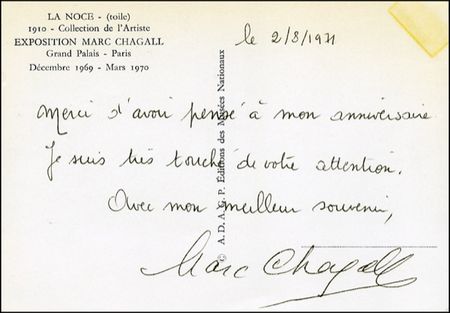 LA NOCE - (toile)
1910 - Collection de l'Artiste
EXPOSITION MARC CHAGALL
Grand Palais - Paris
Décembre 1969 - Mars 1970
le 2/8/1971
Merci d'avoir pensé à mon anniversaire
Je suis très touché de votre attention.
Avec mon meilleur souvenir,
Marc Chagall
© A. D. A. G. P. Éditions des Musées Nationaux